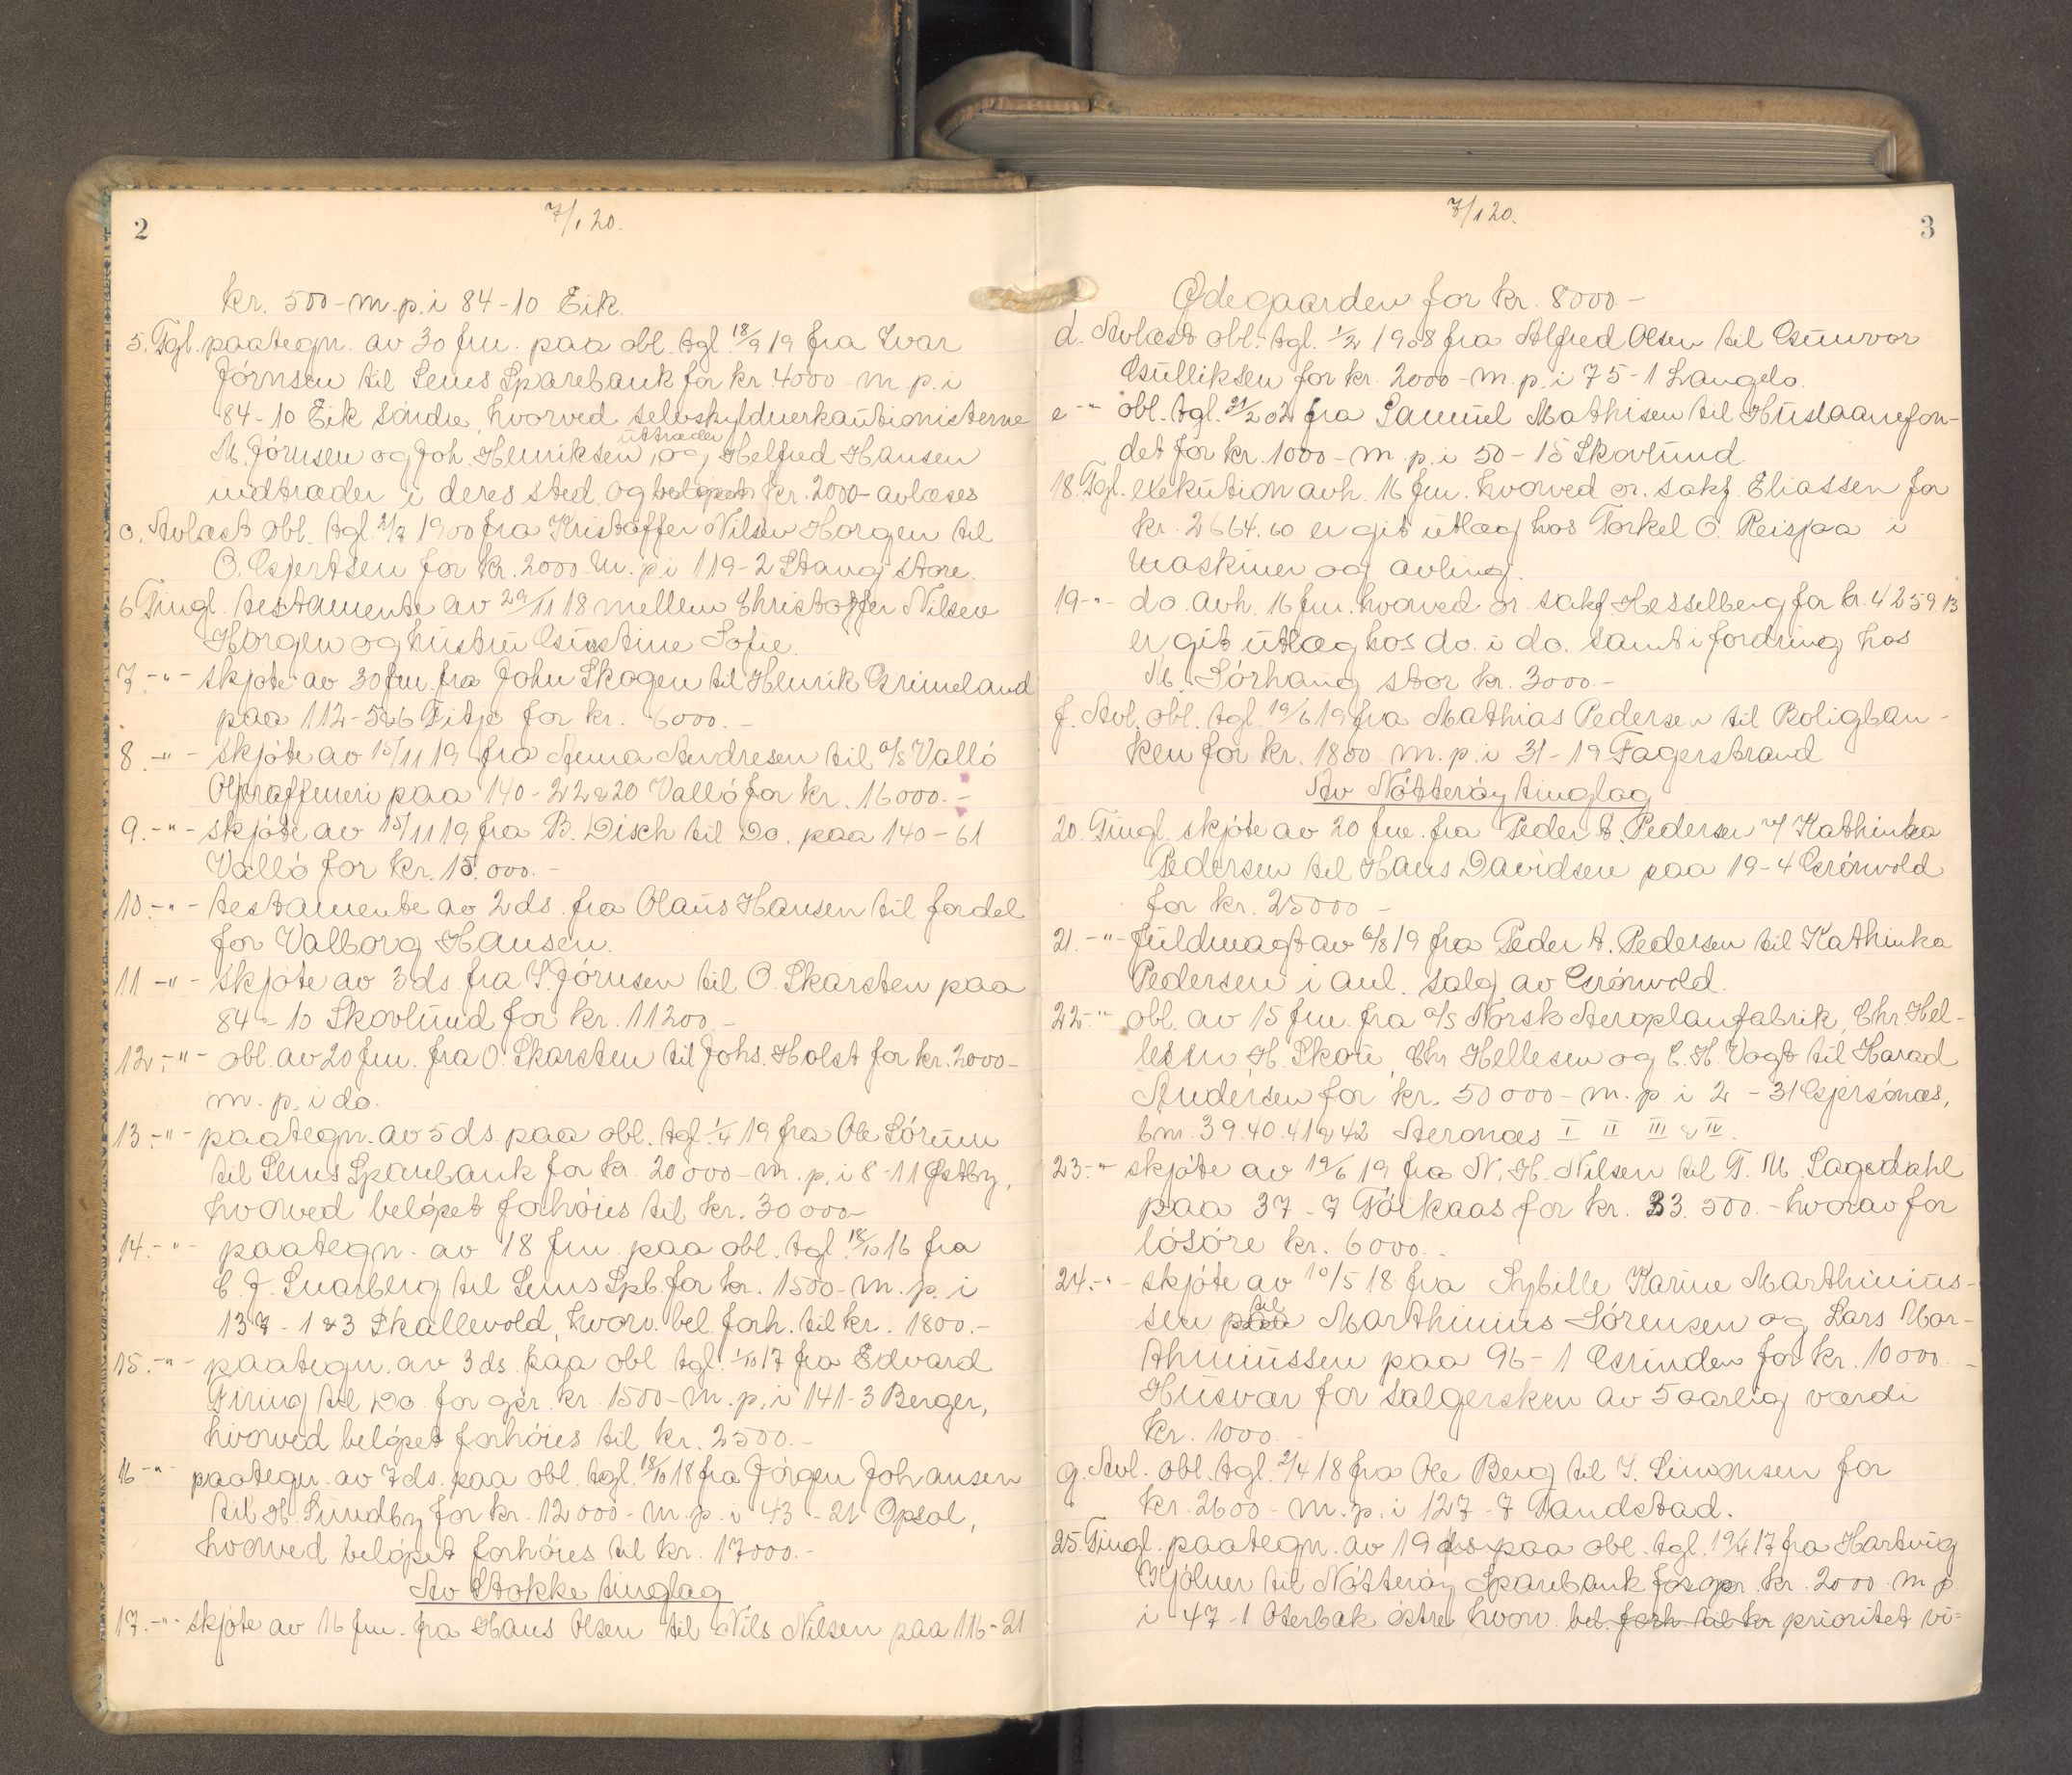 2
7/1 20.
kr. 500 - m. p. i 84-10 Eik.
5. Tgl. paategn. av 30 fm. paa obl. tgl. 18/9 19 fra Ivar
Jörnsen til Sems Sparebank for kr. 4000 - m. p. i
84-10 Eik söndre, hvorved selvskyldnerkautionisterne
M. Jörnsen og Joh. Henriksen uttræder, og Helfred Hansen
indtræder i deres sted. og beløpet kr. 2000 - avlæses
c. Avlæst obl. tgl. 2/7 1900 fra Kristoffer Nilsen Horgen til
O. Gjertsen for kr. 2000 m. p. i 119-2 Stang store.
6 Tingl. testamente av 29/11 18 mellem Christoffer Nilsen
Horgen og hustru Gustine Sofie.
7. -"- skjøte av 30 fm. fra John Skogen til Henrik Grimeland
paa 112-5&6 Fitje for kr. 6000. -
8. -"- skjöte av 15/11 19 fra Anna Andresen til A/S Valló
Oljeraffineri paa 140-22&20 Valló for kr. 16000. -
9. -"- skjöte av 15/11 19 fra B. Disch til Do. paa 140-61
Valló for kr. 15.000. -
10. -"- testamente av 2 ds. fra Olaus Hansen til fordel
for Valborg Hansen.
11 -"- skjöte av 3 ds. fra I. Jörnsen til O. Skarsten paa
84-10 Skovlund for kr. 11200. -
12. -"- obl. av 20 fm. fra O. Skarsten til Johs. Holst for kr. 2000 -
m. p. i do.
13. -"- paategn. av 5 ds. paa obl. tgl. 1/4 19 fra Ole Sórum
til Sems Sparebank for kr. 20000 - m. p. i 8-11 Østby,
hvorved belöpet forhöies til kr. 30000 -
14. -"- paategn. av 18 fm. paa obl. tgl. 18/10 16 fra
C. J. Svarberg til Sems Spb. for kr. 1500 - m. p. i
137-1&3 Skallevold, hvorv. bel. forh. til kr. 1800. -
15. -"- paategn. av 3 ds. paa obl. tgl. 1/10 17 fra Edvard
Firing til Do. for opr. kr. 1500 - m. p. i 141-3 Berger,
hvorved belöpet forhöies til kr. 2500. -
16 -"- paategn. av 7 ds. paa obl. tgl. 18/10 18 fra Jörgen Johansen
til H. Sundby for kr. 12000 - m. p. i 43-21 Opsal,
hvorved belöpet forhöies til kr. 17000. -
Av Stokke tinglag
17. -"- skjöte av 16 fm. fra Hans Olsen til Nils Nilsen paa 116-21
7/1 20.
3
Ødegaarden for kr. 8000 -
d. Avlæst obl. tgl. 1/2 1908 fra Alfred Olsen til Gunvor
Gulliksen for kr. 2000 - m. p. i 75-1 Langelo.
e -"- obl. tgl. 21/2 02 fra Samuel Mathisen til Huslaanefon-
det for kr. 1000 - m. p. i 50-15 Skovlund.
18. Tgl. exekution avh. 16 fm. hvorved or. sakf. Eliassen for
kr. 2664.60 er git utlæg hos Torkel O. Reisjaa i
maskiner og avling.
19 -"- do. avh. 16 fm. hvorved or. sakf. Hesselberg for kr. 4259.13
er git utlæg hos do. i do. samt i fordring hos
M. Sörhaug stor kr. 3000. -
f. Avl. obl. tgl. 19/6 19 fra Mathias Pedersen til Boligban-
ken for kr. 1800 m. p. i 31-19 Fagerstrand
Av Nötteröy tinglag
20. Tingl. skjöte av 20 fm. fra Peder A. Pedersen v/ Kathinka
Pedersen til Hans Davidsen paa 19-4 Grönvold
for kr. 25000 -
21. -"- fuldmagt av 6/8 19 fra Peder A. Pedersen til Kathinka
Pedersen i anl. salg av Grönvold.
22 -"- obl. av 15 fm. fra A/S Norsk Aeroplanfabrik, Chr. Hel-
lesen, H. Skou, Chr. Hellesen og C. H. Vogt til Harad
Andersen for kr. 50000 - m. p. i 2-31 Gjersönæs,
bnr. 39. 40. 41 & 42 Aeronæs I II III & IV.
23. -"- skjöte av 19/6 19 fra N. H. Nilsen til T. M. Sagedahl
paa 37-7 Töikaas for kr. 33.500. - hvorav for
lösöre kr. 6000. -
24. -"- skjöte av 10/5 18 fra Sybille Karine Marthinius-
sen paa til Marthinius Sörensen og Lars Mar-
thiniussen paa 96-1 Grinden for kr. 10000. -
Husvær for sælgersken av 5 aarlig værdi
kr. 1000. -
g. Avl. obl. tgl. 2/4 18 fra Ole Berg til I. Simonsen for
kr. 2600 - m. p. i 127-7 Tandstad.
25. Tingl. paategn. av 19 ds. paa obl. tgl. 19/4 17 fra Hartvig
Kjölner til Nötteröy Sparebank for opr. kr. 2000 m. p.
i 47-1 Oterbæk östre, hvorv. bel. forh. til kr prioritet vi-